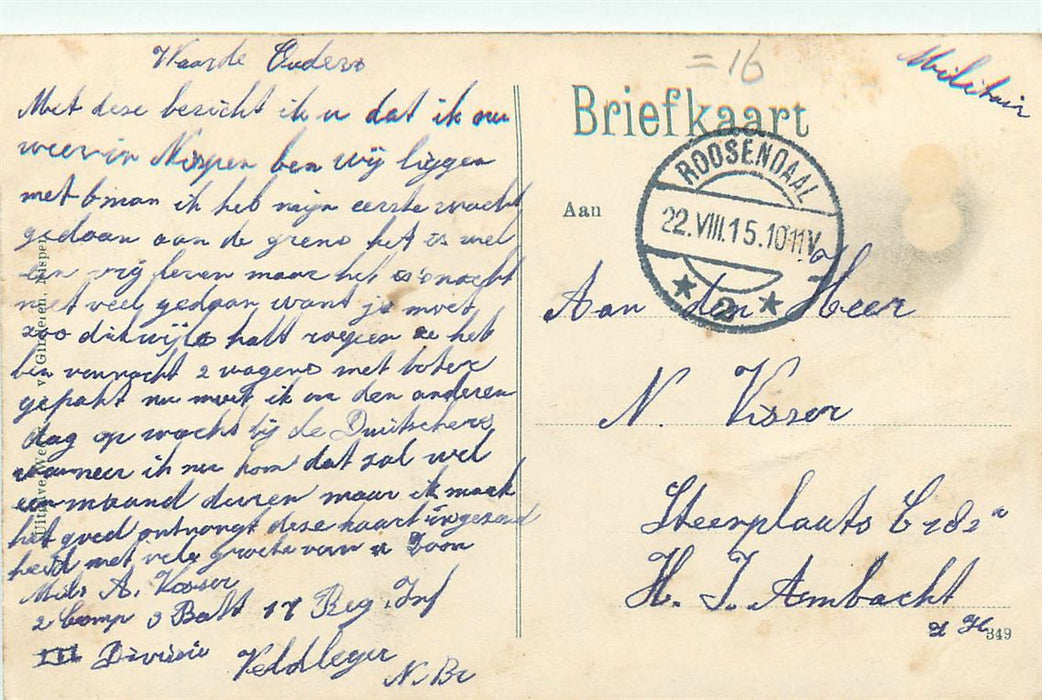 Waarde Ouders
Met dese bericht ik u dat ik nu
weer in Nispen ben wij liggen
met 6 man ik heb mijn eerste wacht
gedaan aan de grens het is wel
een vrij leven maar het is snachts
niet veel gedaan want je moet
zoo dikwijls halt roepen ik heb
ben vannacht 2 wagens met boter
gepakt nu moet ik om den anderen
dag op wacht bij de Duitschers
wanneer ik nu kom dat zal wel
een maand duren maar ik maak
het goed ontvangt dese kaart in gezond
heid met vele groete van u Zoon
Mil. A. Visser
2 Comp 3 Batt 17 Reg. Inf
III Divisie Veldleger
N. Br
Uitgave Wed. v. Ginderen, Nispen
= 16
Militair
Briefkaart
ROOSENDAAL
22.VIII.15.10-11V
* 2 *
Aan
Aan den Heer
N. Visser
Steenplaats C 282a
H. I. Ambacht
Z H
349